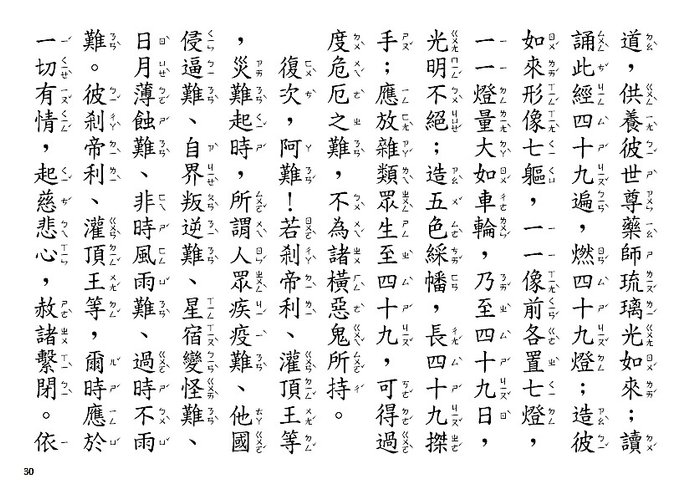 道，供養彼世尊藥師琉璃光如來；讀
誦此經四十九遍，燃四十九燈；造彼
如來形像七軀，一一像前各置七燈，
一一燈量大如車輪，乃至四十九日，
光明不絕；造五色綵幡，長四十九搩
手；應放雜類眾生至四十九，可得過
度危厄之難，不為諸橫惡鬼所持。
復次，阿難！若剎帝利、灌頂王等
，災難起時，所謂人眾疾疫難、他國
侵逼難、自界叛逆難、星宿變怪難、
日月薄蝕難、非時風雨難、過時不雨
難。彼剎帝利、灌頂王等，爾時應於
一切有情，起慈悲心，赦諸繫閉。依
30